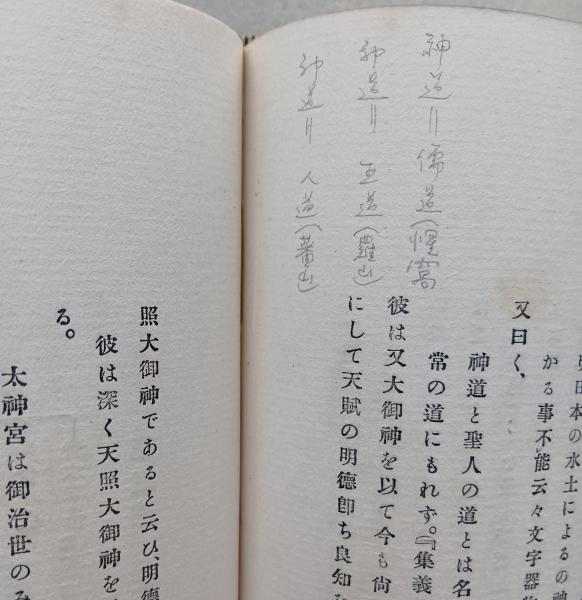 神道=儒道(惺窩
神道=王道(羅山)
神道=人道(蕃山)
日本の水土によるの神
かる事不能云々文字器
又曰く、
神道と聖人の道とは名
常の道にもれず。『集義
彼は又大御神を以て今も尙
にして天賦の明德卽ち良知
照大御神であると云ひ、明德
彼は深く天照大御神を
る。
太神宮は御治世のみ